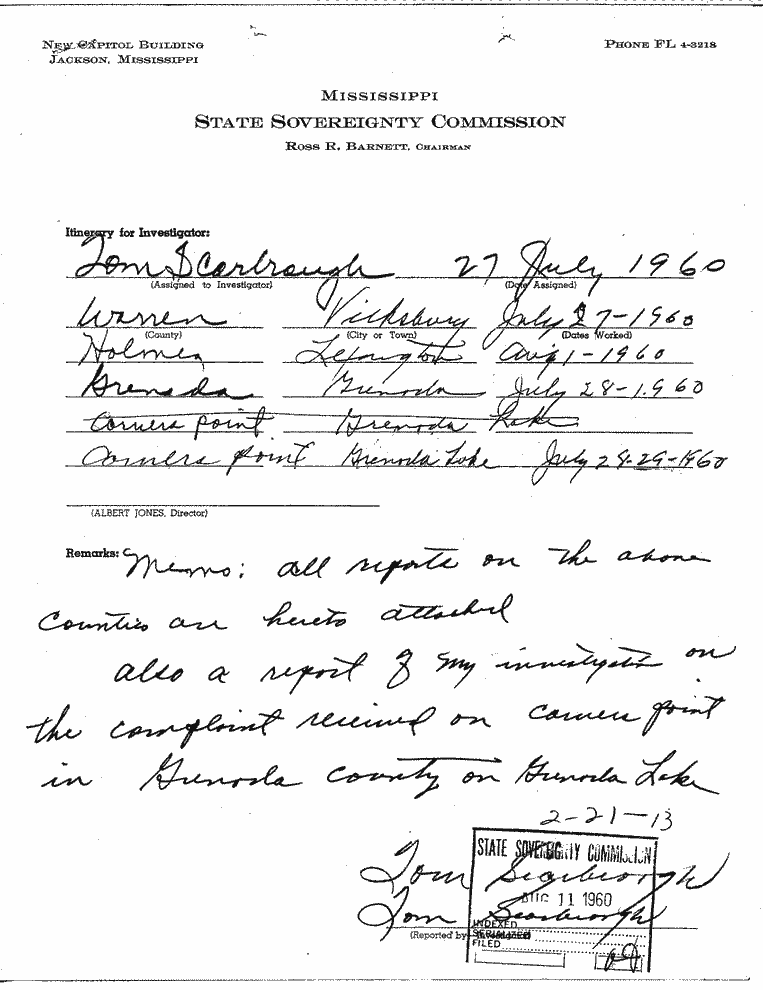 New Capitol Building
Jackson, Mississippi
Phone FL 4-3218
Mississippi
State Sovereignty Commission
Ross R. Barnett, Chairman
Itinerary for Investigator:
Tom Scarbrough 27 July 1960
(Assigned to Investigator) (Date Assigned)
Warren Vicksburg July 27-1960
(County) (City or Town) (Dates Worked)
Holmes Lexington Aug 1-1960
Grenada Grenada July 28-1960
Comers point Grenada Lake
Comers point Grenada Lake July 28-29-1960
(ALBERT JONES, Director)
Remarks:
Memo: all reports on the above
Counties are hereto attached
also a report of my investigation on
the complaint received on Comers point
in Grenada County on Grenada Lake
2-21-13
Tom Scarbrough
STATE SOVEREIGNTY COMMISSION
AUG 11 1960
Tom Scarbrough
INDEXED
(Reported by
SERIALIZED
FILED